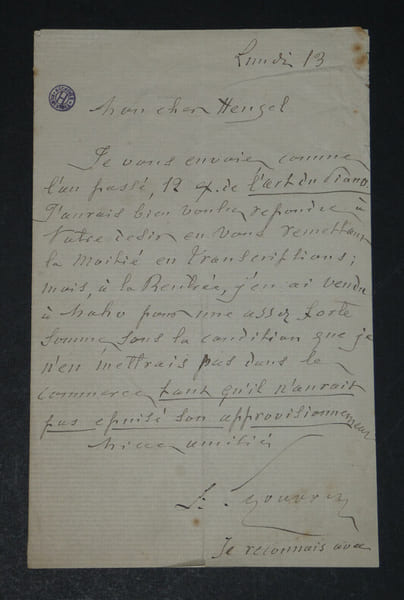 Lundi 13
Mon cher Hengel
Je vous envoie comme
l'an passé, 12 ex. de l'art du piano.
J'aurais bien voulu répondre à
votre désir en vous remettant
la Moitié en transcriptions;
mais, à la Rentrée, j'en ai vendu
à Maho pour une assez forte
somme sous la condition que je
n'en mettrais pas dans le
commerce tant qu'il n'aurait
pas épuisé son approvisionnement
Mille amitiés
Je reconnais avec